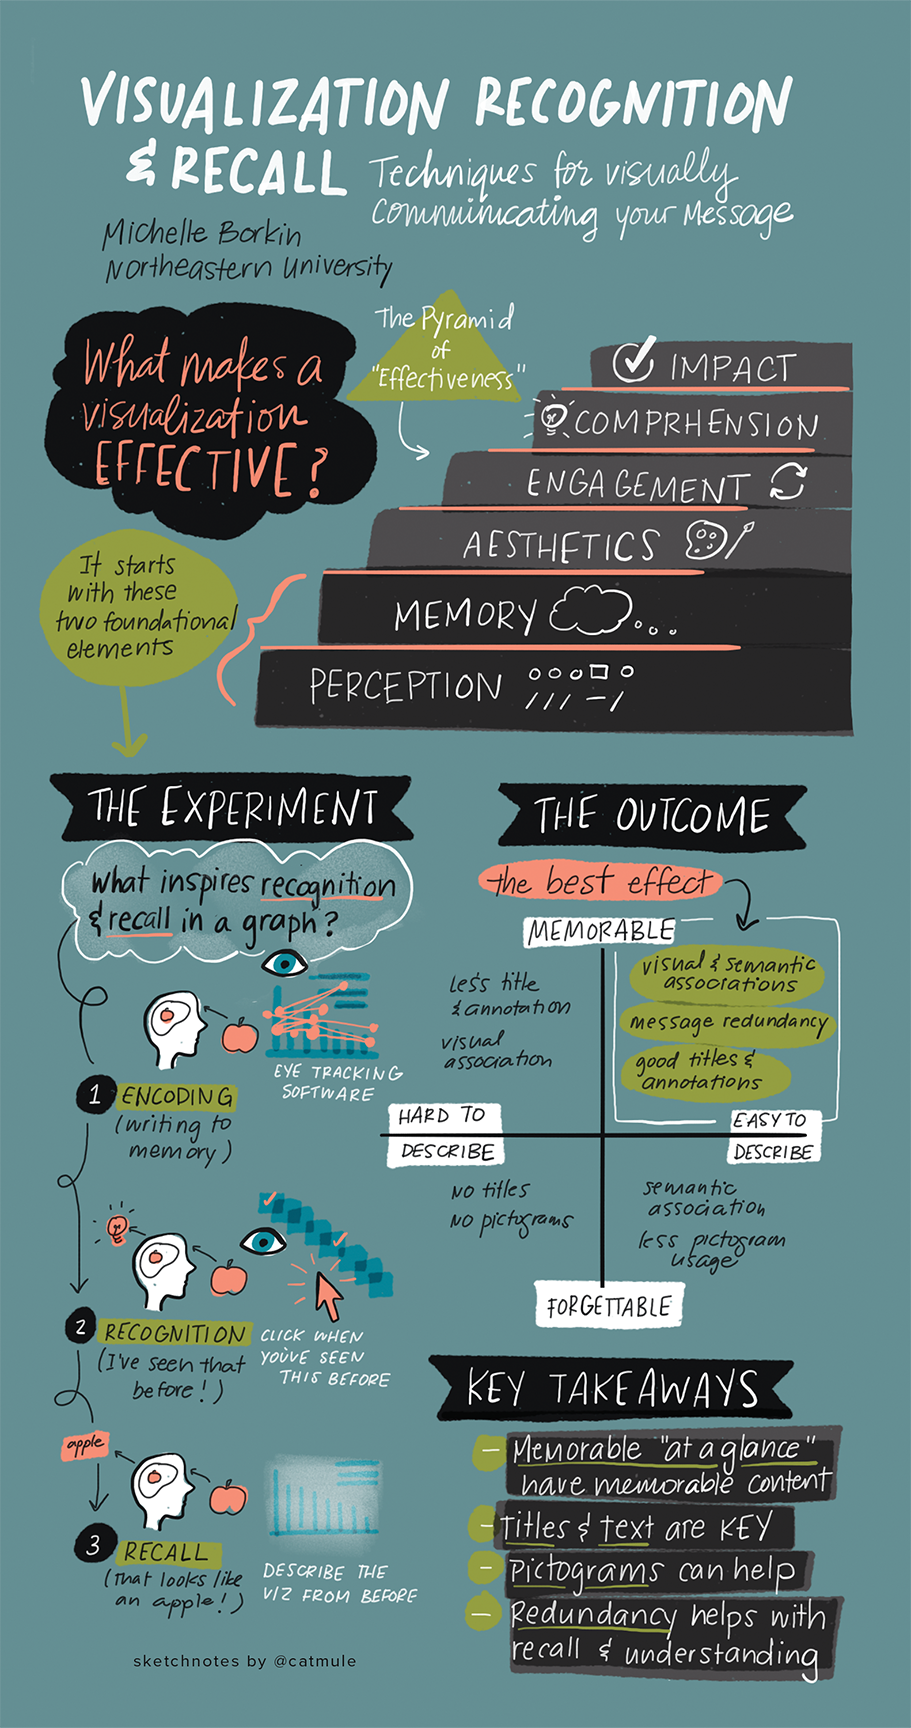 VISUALIZATION RECOGNITION
& RECALL
Techniques for visually
Communicating your Message
Michelle Borkin
Northeastern University
What makes a
visualization
EFFECTIVE?
The Pyramid
of
"Effectiveness"
IMPACT
COMPRHENSION
ENGAGEMENT
AESTHETICS
MEMORY
PERCEPTION
It starts
with these
two foundational
elements
THE EXPERIMENT
What inspires recognition
& recall in a graph?
EYE TRACKING
SOFTWARE
1 ENCODING
(writing to
memory)
2 RECOGNITION
(I've seen that
before!)
CLICK WHEN
YOU'VE SEEN
THIS BEFORE
apple
3 RECALL
(that looks like
an apple!)
DESCRIBE THE
VIZ FROM BEFORE
THE OUTCOME
the best effect
MEMORABLE
less title
& annotation
visual
association
visual & semantic
associations
message redundancy
good titles &
annotations
HARD TO
DESCRIBE
EASY TO
DESCRIBE
no titles
no pictograms
semantic
association
less pictogram
usage
FORGETTABLE
KEY TAKEAWAYS
- Memorable "at a glance"
have memorable content
- Titles & text are KEY
- Pictograms can help
- Redundancy helps with
recall & understanding
sketchnotes by @catmule